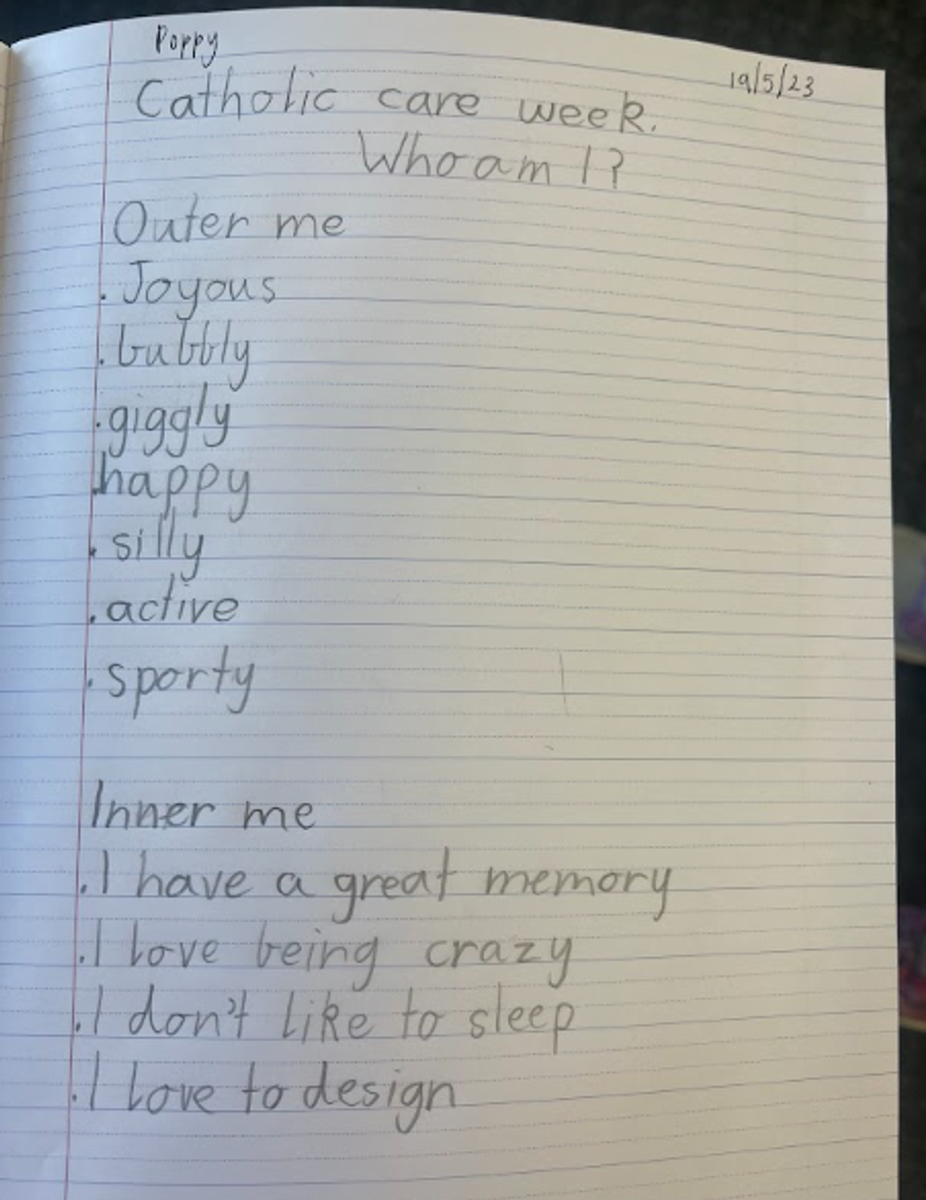 Poppy
19/5/23
Catholic care week.
Who am I?
Outer me
. Joyous
. bubbly
. giggly
. happy
. silly
. active
. sporty
Inner me
. I have a great memory
. I love being crazy
. I don't like to sleep
. I love to design